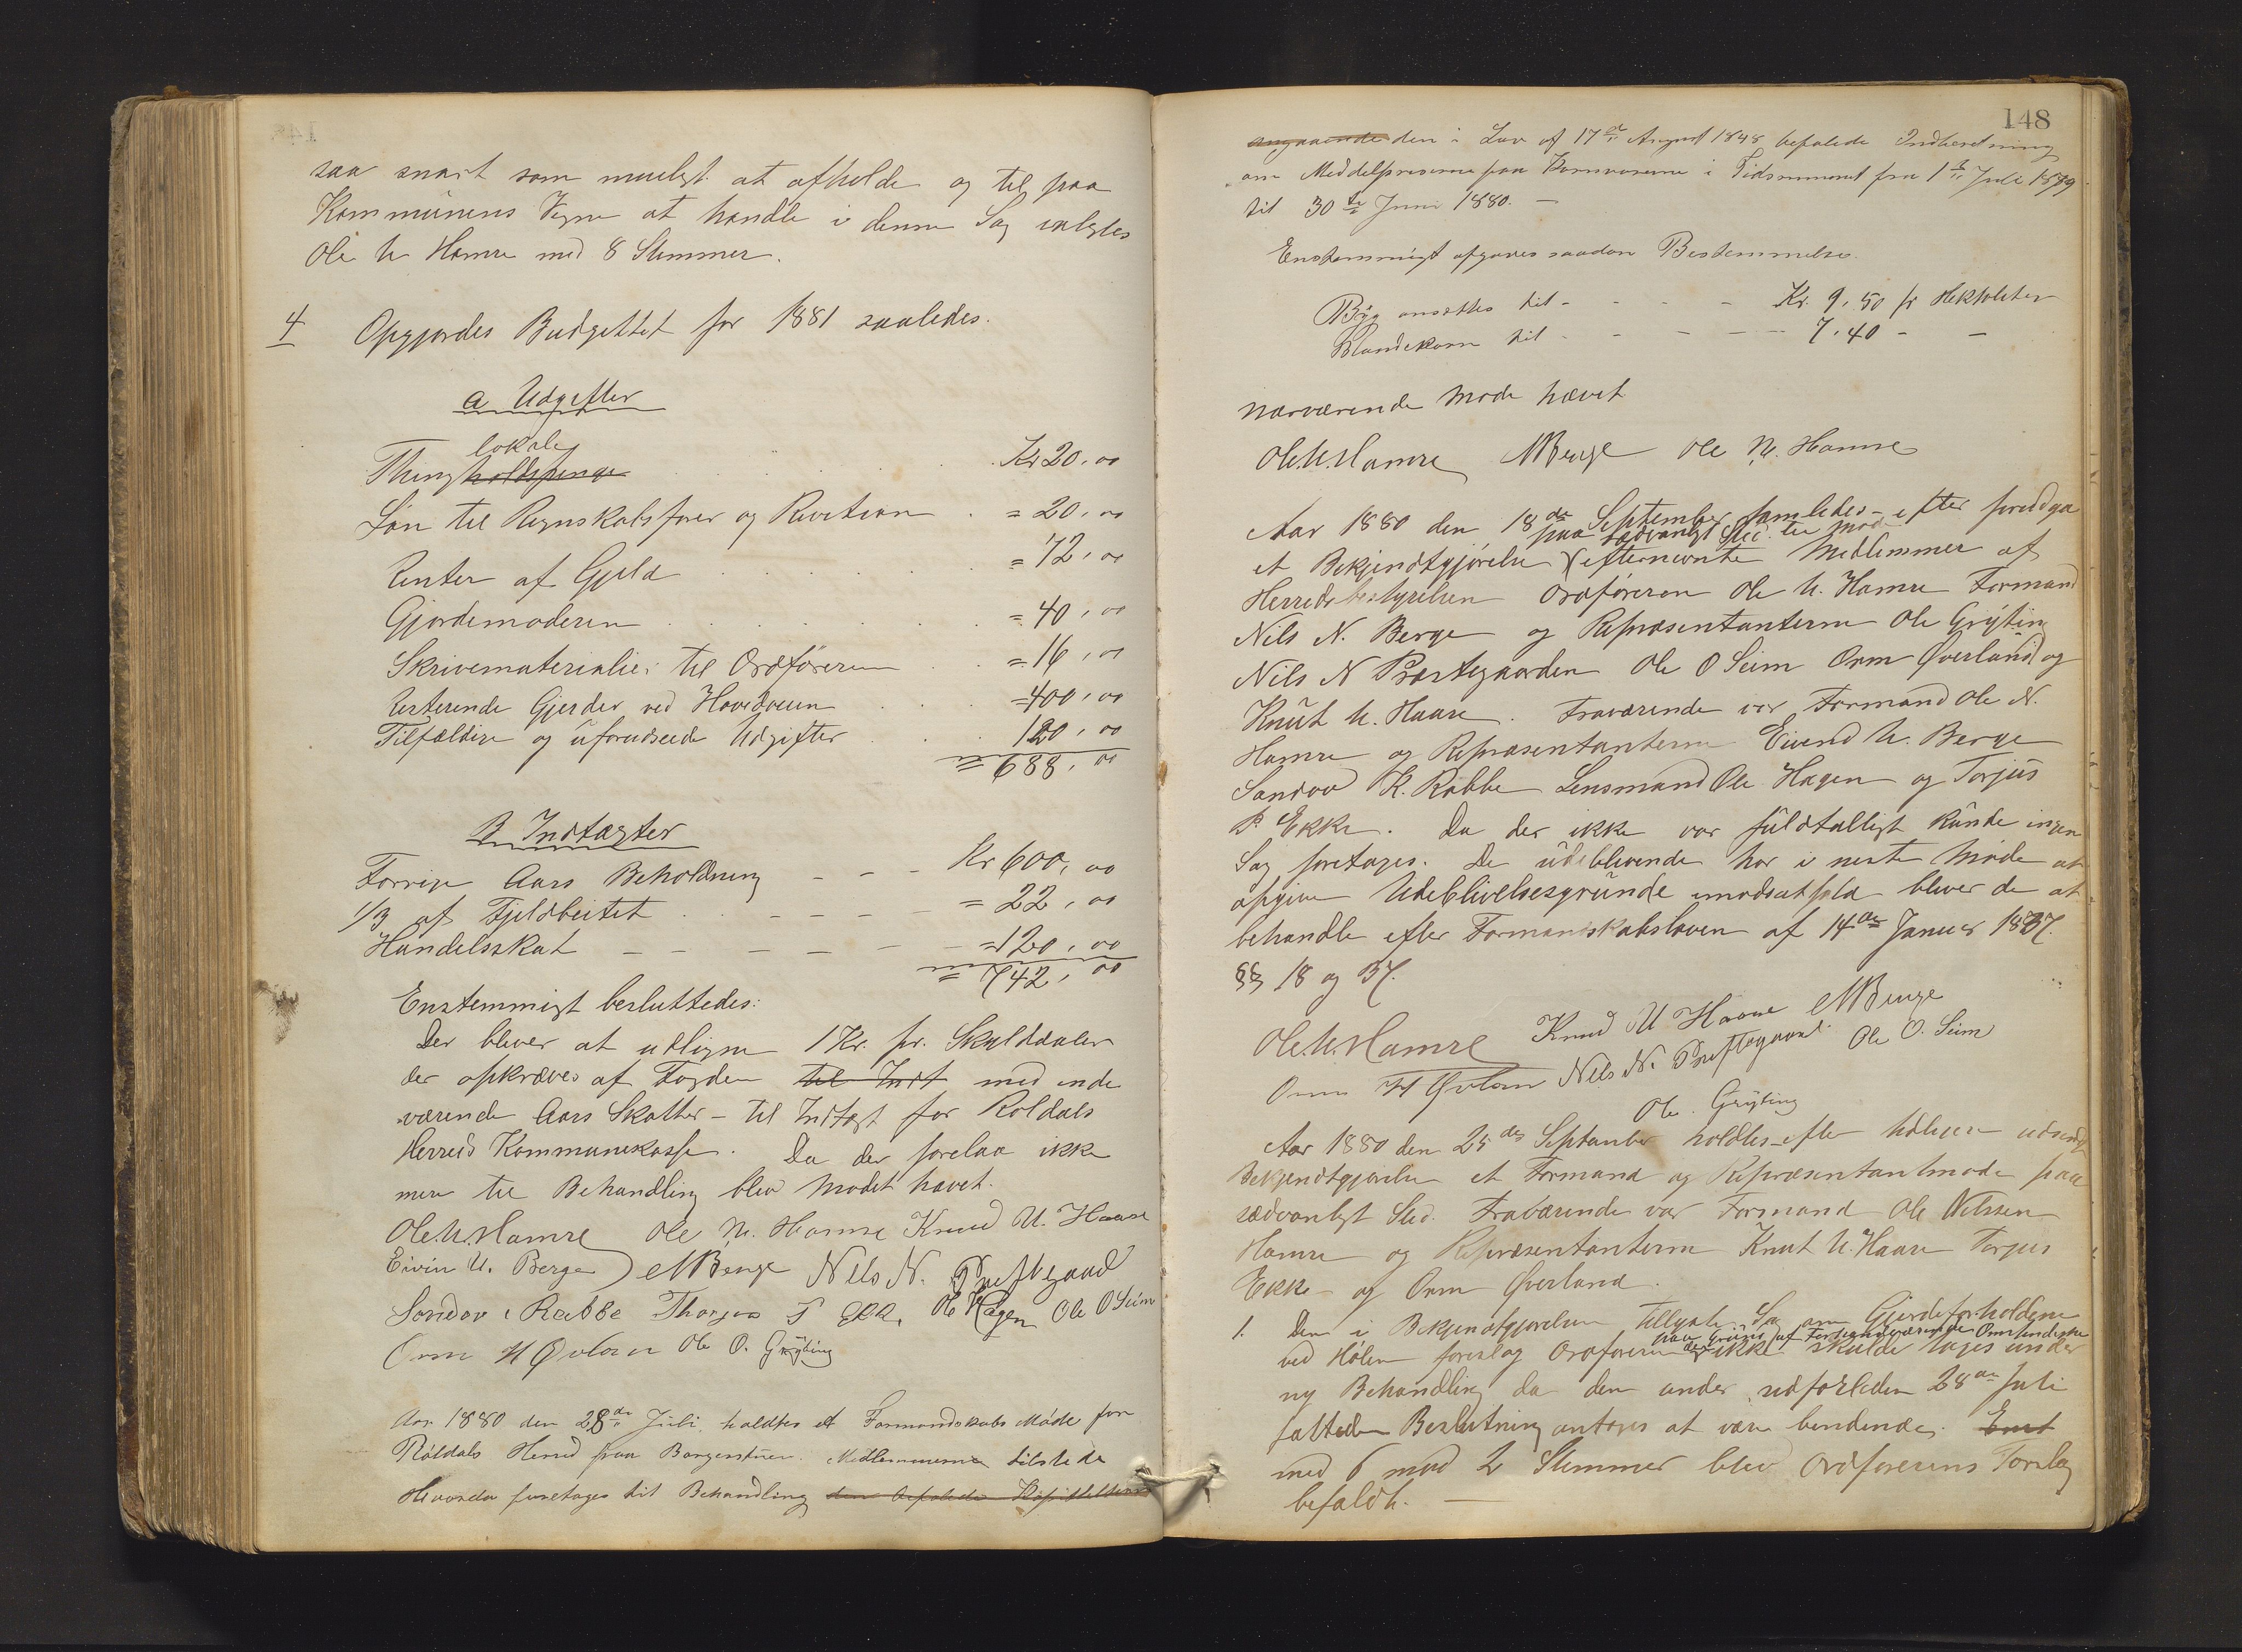 saa snart som mueligt at afholde og til paa
Kommunens Vegne at handle i denne Sag valgtes
Ole U Hamre med 8 Stemmer.
4 Opgjordes Budgettet for 1881 saaledes.
a Udgifter
lokale
Thingholdspenge Kr 20,00
Løn til Regnskabsfører og Revition = 20,00
Renter af Gjeld = 72,00
Gjordemoderen = 40,00
Skrivematerialier til Ordføreren = 16,00
Resterende Gjerder ved = 400,00
Tilfældige og uforudseede Udgifter 120,00
= 688,00
B Indtægter
Forrige Aars Beholdning Kr 600,00
1/3 af Fjeldbeitet = 22,00
Handelsskat = 120,00
= 742,00
Enstemmigt besluttedes:
Der bliver at udligne 1 Kr. pr. Skylddaler
der opkræves af Fogden til Indt med inde
værende Aars Skatter - til Indtægt for Roldals
Herreds Kommunekasse. Da der forelaa ikke
mere til Behandling blev Modet hævet.
Ole U. Hamre Ole N. Hamre Knud U. Haare
Eivin U. Berge NNBerge Nels N. Prestegaard
Sandov Rabbe Thorjus T Ekk. Ole Hagen Ole O Seim
Orm H Øvlan Ole O. Grýting
Aar 1880 den 28de Juli holdtes et Formandskabs Møde for
Røldals Herred paa Borgerstuen. Medlemmerne tilstede
Hvorda foretages til Behandling den befalede Kapitelstaxt
148
angaaende den i Lov af 17de August 1848 befalede Indberetning
om Meddelpriserne paa Kornvarerne i Tidsrummet fra 1te Juli 1879
til 30te Juni 1880. -
Enstemmigt afgaves saadan Bestemmelse.
Byg ansættes til - - - - Kr. 9,50 pr Hektoliter
Blandekorn til - - - - 7,40 - -
nærværende Mode hævet
Ole U. Hamre NNBerge Ole N. Hamre
Aar 1880 den 18de September samledes - efter foreudgaa
paa sædvanligt Sted til mode
et Bekjendtgjørelse efternevnte Medlemmer af
Herredsbestyrelsen Ordføreren Ole U. Hamre Formand
Nils N. Berge og Repræsentanterne Ole Grýting
Nils N Præstegaarden Ole O Seim Orm Øverland og
Knut U. Haare. Fraværende var Formand Ole N.
Hamre og Repræsentanterne Eivend U. Berge
Sandov K. Rabbe Lensmand Ole Hagen og Torjus
P. Ekke. Da der ikke var fuldtalligt kunde ingen
Sag foretages. De udeblivende har i neste Møde at
opgive Udeblivelsesgrunde imodsatfald bliver de at
behandle efter Formandskabsloven af 14de Januar 1837.
§§ 18 og 37.
Ole U. Hamre Knud U Haare NNBerge
Orm H Øvlan Nels N. Prestegaard Ole O. Seim
Ole Grýting
Aar 1880 den 25de September holdtes - efter tidligere udsendt
Bekjendtgjørelse et Formand og Repræsentantmøde paa
sædvanligt Sted. Fraværende var Formand Ole Nilssen
Hamre og Repræsentanterne Knut U. Haare Torjus
Ekke - og Orm Øverland.
1. Den i Bekjendtgjørelsen Sag om Gjerdeforholdene
paa Grund af
ved foreslog Ordføreren ikke skulde tages under
ny Behandling da den under udforleden 28de Juli
fattede Beslutning antages at være bendende. Enst
med 6 mod 2 Stemmer blev Ordførerens Forslag
befaldt. -